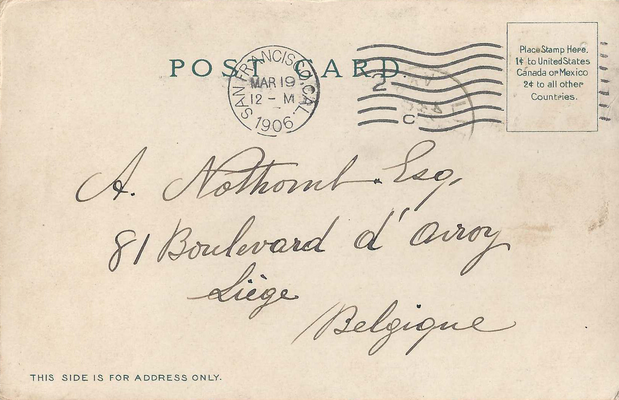 POST CARD.
SAN FRANCISCO, CAL.
MAR 19
12 - M
1906
2
C
Place Stamp Here.
1¢ to United States
Canada or Mexico
2¢ to all other
Countries.
A. Nothomb Esq,
81 Boulevard d'Avroy
Liège
Belgique
THIS SIDE IS FOR ADDRESS ONLY.